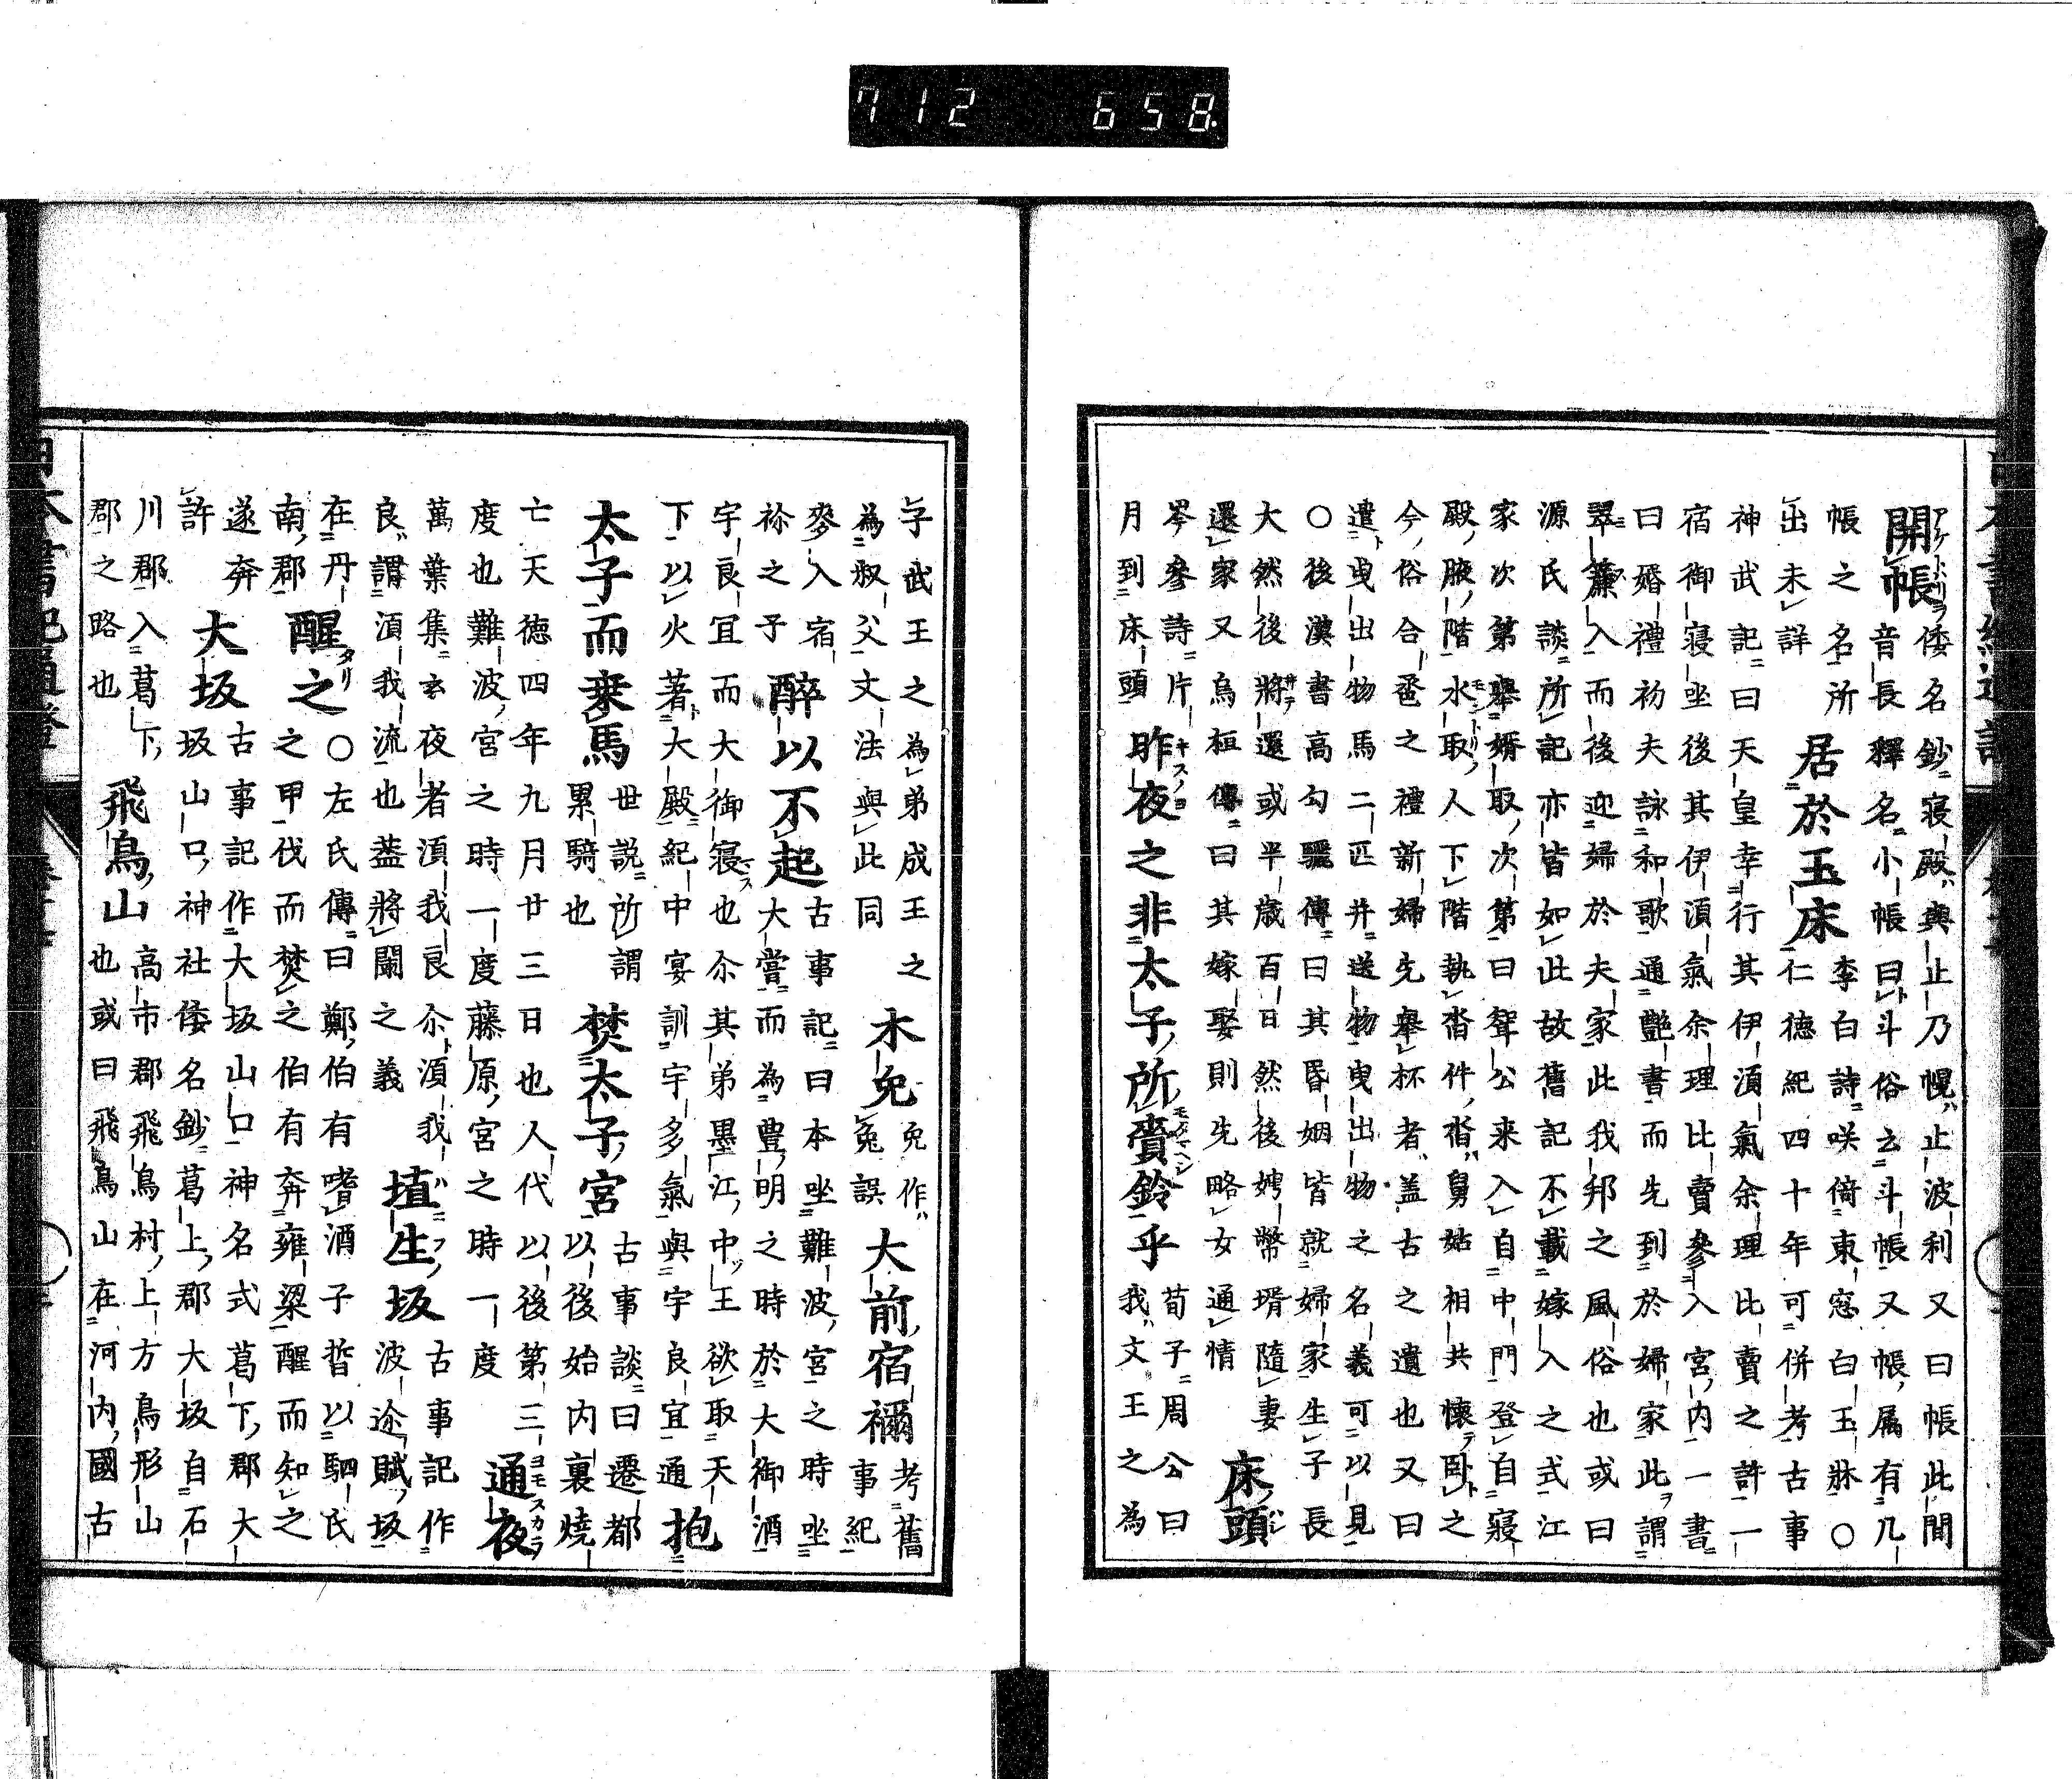 712 658.
開帳
倭名鈔寢殿與止乃幌止波利又曰帳此間
音長釋名小帳曰斗俗云斗帳又帳属有几
帳之名所
出未詳
居於玉床
李白詩咲倚東窓白玉牀〇
仁德紀四十年可併考古事
神武記曰天皇幸行其伊湏氣余理比賣之許一
宿御寢坐後其伊湏氣余理比賣參入宮内一書
曰婚禮初夫詠和歌通艶書而先到於婦家此謂
翠簾入而後迎婦於夫家此我邦之風俗也或曰
源氏談所記亦皆如此故舊記不載嫁入之式江
家次第舉婿取次第曰聟公来入自中門登自寢
殿腋階水取人下階執沓件沓舅姑相共懐卧之
今俗合卺之禮新婦先舉杯者盖古之遺也又曰
遣曳出物馬二匹并送物曳出物之名義可以見
〇後漢書高勾驪傳曰其昏姻皆就婦家生子長
大然後將還或半歳百日然後娉幣壻隨妻
還家又烏桓傳曰其嫁娶則先略女通情
床頭
岑參詩片
月到床頭
昨夜之非太子所賷鈴乎
荀子周公曰
我文王之為
子武王之為弟成王之
為叔父文法與此同
木兔
兔作
菟誤
大前宿禰
考舊
事紀
麥入宿
祢之子
醉以不起
古事記曰本坐難波宮之時坐
大嘗而為豊明之時於大御酒
宇良宜而大御寢也尒其弟墨江中王欲取天
下以火著大殿紀中宴訓宇多氣與宇良宜通
抱
太子而乗馬
世說所謂
累騎也
焚太子宮
古事談曰遷都
以後始内裏燒
亡天徳四年九月廿三日也人代以後第三
度也難波宮之時一度藤原宮之時一度
通夜
萬葉集玄夜者湏我良尒湏我
良謂湏我流也盖將闌之義
埴生坂
古事記作
波迩賦坂
在丹
南郡
醒之
〇左氏傳曰鄭伯有嗜酒子晳以駟氏
之甲伐而焚之伯有奔雍梁醒而知之
遂奔
許
大坂
古事記作大坂山口神名式葛下郡大
坂山口神社倭名鈔葛上郡大坂自石
川郡入葛下
郡之路也
飛鳥山
高市郡飛鳥村上方鳥形山
也或曰飛鳥山在河内國古